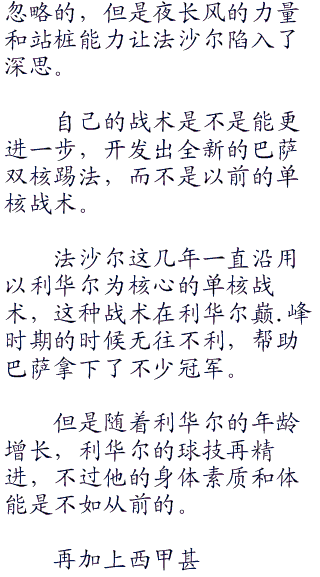 忽略的，但是夜长风的力量
和站桩能力让法沙尔陷入了
深思。
自己的战术是不是能更
进一步，开发出全新的巴萨
双核踢法，而不是以前的单
核战术。
法沙尔这几年一直沿用
以利华尔为核心的单核战
术，这种战术在利华尔巅.峰
时期的时候无往不利，帮助
巴萨拿下了不少冠军。
但是随着利华尔的年龄
增长，利华尔的球技再精
进，不过他的身体素质和体
能是不如从前的。
再加上西甲甚